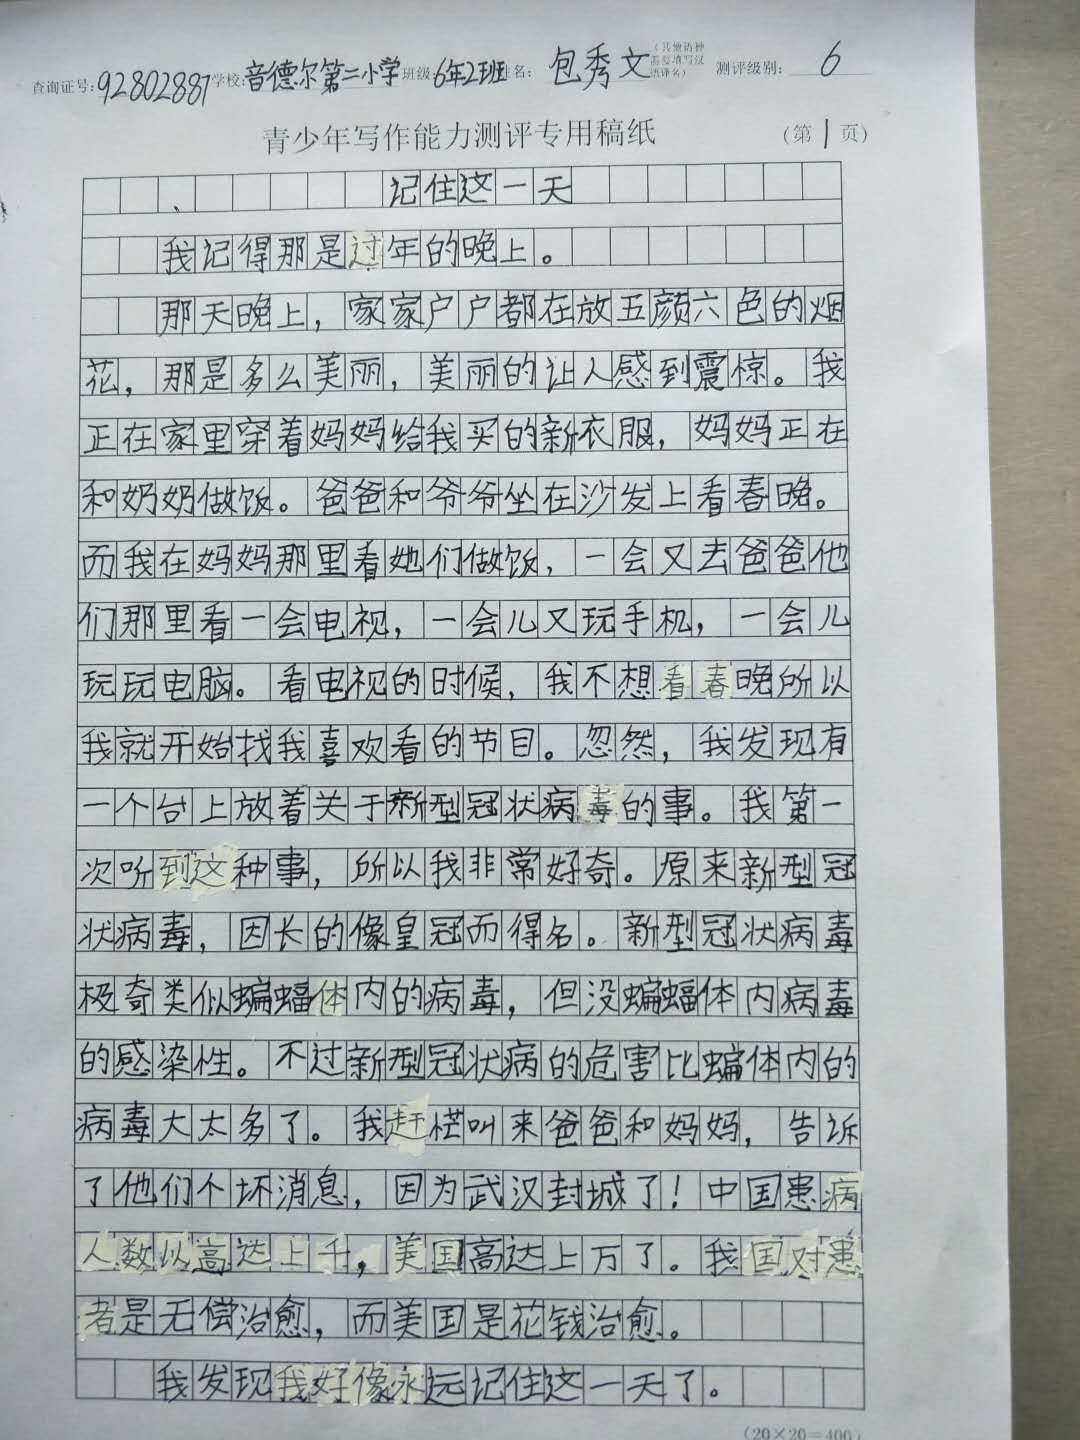 查询证号:92802887 学校:音德尔第二小学 班级:6年2班 姓名:包秀文 (其他语种需要填写汉语译名) 测评级别:6
青少年写作能力测评专用稿纸 (第1页)
、记住这一天
我记得那是过年的晚上。
那天晚上，家家户户都在放五颜六色的烟
花，那是多么美丽，美丽的让人感到震惊。我
正在家里穿着妈妈给我买的新衣服，妈妈正在
和奶奶做饭。爸爸和爷爷坐在沙发上看春晚。
而我在妈妈那里看她们做饭，一会又去爸爸他
们那里看一会电视，一会儿又玩手机，一会儿
玩玩电脑。看电视的时候，我不想看春晚所以
我就开始找我喜欢看的节目。忽然，我发现有
一个台上放着关于新型冠状病毒的事。我第一
次听到这种事，所以我非常好奇。原来新型冠
状病毒，因长的像皇冠而得名。新型冠状病毒
极奇类似蝙蝠体内的病毒，但没蝙蝠体内病毒
的感染性。不过新型冠状病的危害比蝙体内的
病毒大太多了。我赶忙叫来爸爸和妈妈，告诉
了他们个坏消息，因为武汉封城了！中国患病
人数以高达上千，美国高达上万了。我国对患
者是无偿治愈，而美国是花钱治愈。
我发现我好像永远记住这一天了。
(20×20=400)